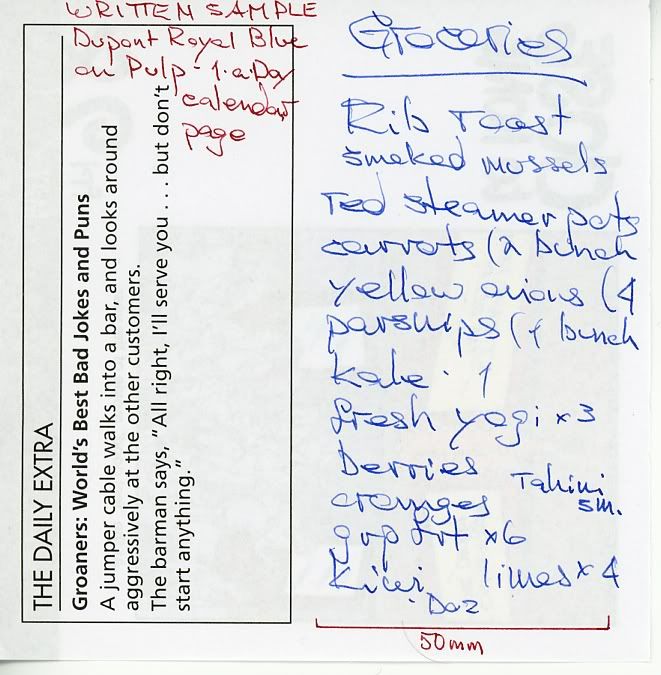 WRITTEN SAMPLE
Dupont Royal Blue
on Pulp - 1·a·Day
calendar
page
THE DAILY EXTRA
Groaners: World's Best Bad Jokes and Puns
A jumper cable walks into a bar, and looks around
aggressively at the other customers.
The barman says, "All right, I'll serve you . . . but don't
start anything."
Groceries
Rib roast
smoked mussels
red steamer pots
carrots (2 bunch
yellow onions (4
parsnips (1 bunch
kale · 1
fresh yogi x3
Berries
Tahini
sm.
oranges
grp frt x6
Kiwi limes x4
Doz
50mm